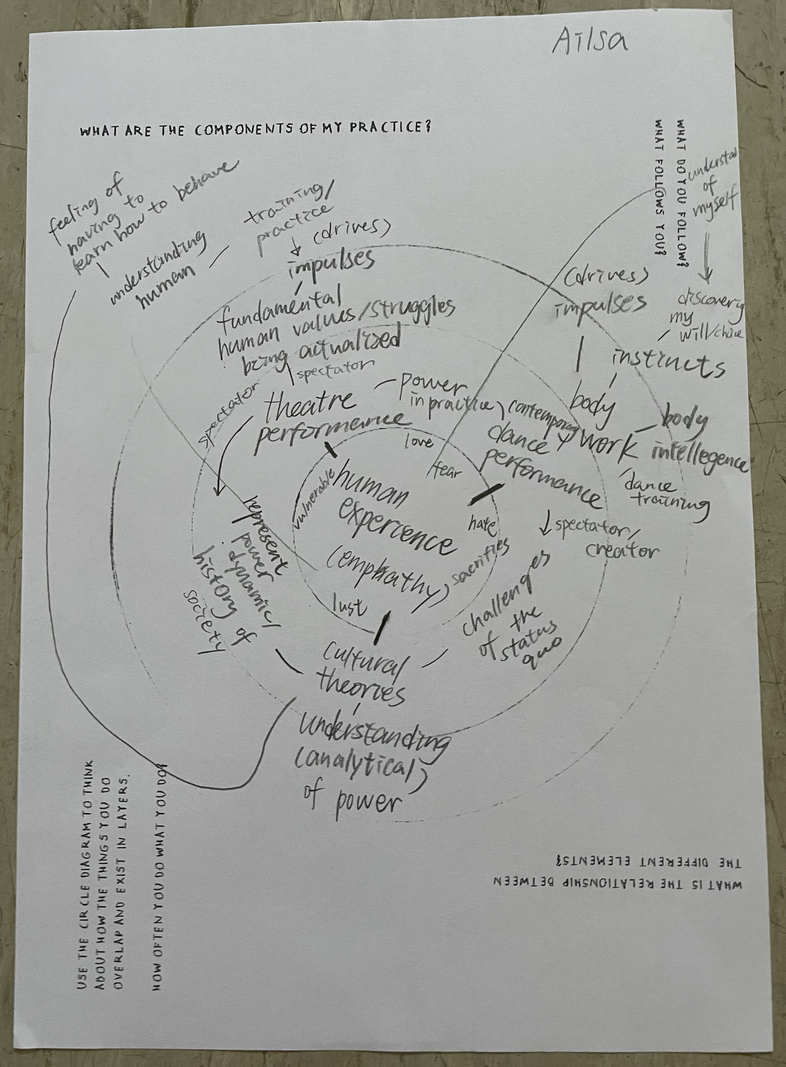 Ailsa
WHAT ARE THE COMPONENTS OF MY PRACTICE?
WHAT DO YOU FOLLOW?
WHAT FOLLOWS YOU?
understand
of
myself
discovering
my
will/choice
feeling of
having to
learn how to behave
understanding
human
training/
practice
(drives)
impulses
fundamental
human values/struggles
being actualized
spectator
spectator
theatre
performance
power
in practice
(drives)
impulses
instincts
body
work
body
intellegence
dance
training
(contemporary)
dance
performance
spectator/
creator
love
fear
hate
sacrifies
lust
vulnerable
human
experience
(empkathy)
represent
power
dynamic/
history of
society
challenges
of the
status
quo
cultural
theories
understanding
(analytical)
of power
USE THE CIRCLE DIAGRAM TO THINK
ABOUT HOW THE THINGS YOU DO
OVERLAP AND EXIST IN LAYERS.
HOW OFTEN YOU DO WHAT YOU DO?
WHAT IS THE RELATIONSHIP BETWEEN
THE DIFFERENT ELEMENTS?